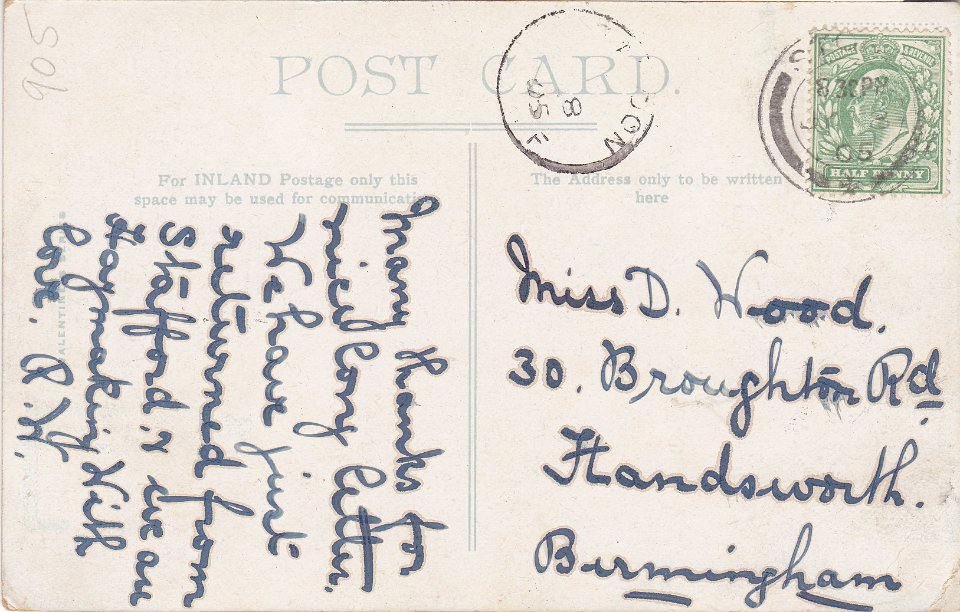 905
POST CARD.
For INLAND Postage only this
space may be used for communication
The Address only to be written
here
POSTAGE & REVENUE
HALF PENNY
8.30 PM
05
Many thanks for
nice long letter.
We have just
returned from
Stafford & we are
Haymaking With
love.
Miss D. Wood.
30. Broughton Rd.
Handsworth.
Birmingham